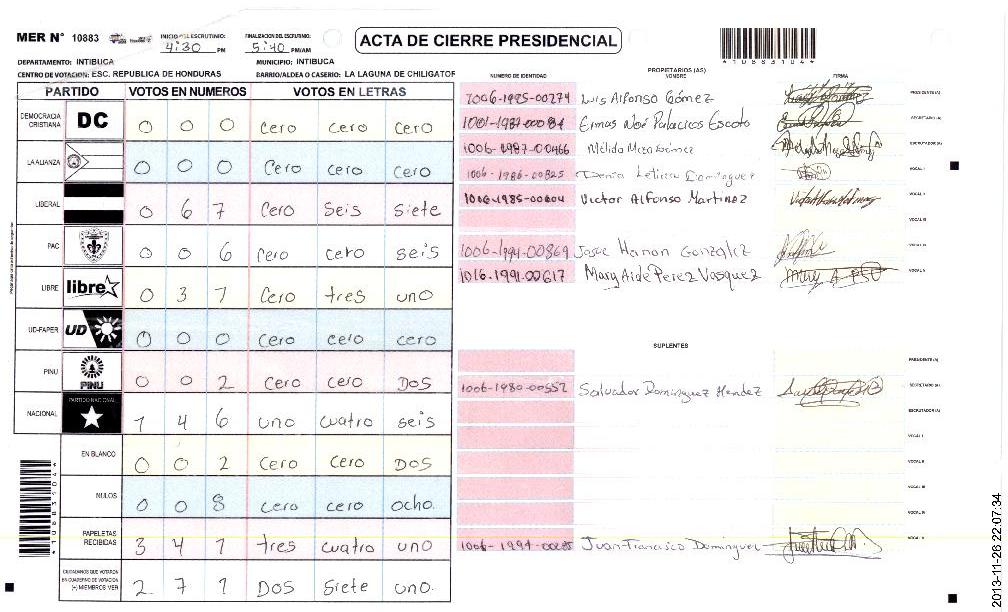 MER N° 10883 INICIO DEL ESCRUTINIO: 4:30 PM FINALIZACION DEL ESCRUTINIO: 5:40 PM/AM
ACTA DE CIERRE PRESIDENCIAL
*10883104*
DEPARTAMENTO: INTIBUCA MUNICIPIO: INTIBUCA
CENTRO DE VOTACION: ESC. REPUBLICA DE HONDURAS BARRIO/ALDEA O CASERIO: LA LAGUNA DE CHILIGATOF
PARTIDO VOTOS EN NUMEROS VOTOS EN LETRAS
DEMOCRACIA CRISTIANA DC 0 0 0 Cero cero Cero
LA ALIANZA 0 0 0 Cero cero cero
LIBERAL 0 6 7 Cero Seis Siete
PAC 0 0 6 Cero cero seis
LIBRE libre 0 3 1 Cero tres uno
UD-FAPER UD 0 0 0 Cero cero cero
PINU PINU 0 0 2 Cero cero DOS
NACIONAL PARTIDO NACIONAL 1 4 6 uno cuatro seis
EN BLANCO 0 0 2 Cero Cero DOS
NULOS 0 0 8 cero cero ocho.
PAPELETAS RECIBIDAS 3 4 1 tres cuatro uno
CIUDADANOS QUE VOTARON EN CUADERNO DE VOTACION (+) MIEMBROS MER 2 7 1 DOS Siete uno.
PROPIETARIOS (AS)
NUMERO DE IDENTIDAD NOMBRE FIRMA
1006-1995-00274 Luis Alfonso Gómez PRESIDENTE (A)
Ermas Noé Palacios Escoto SECRETARIO (A)
1006-1987-00466 Mélida Meza Gómez ESCRUTADOR (A)
1006-1986-00825 Denia Leticia Dominguez VOCAL I
1006-1985-00604 Victor Alfonso Martinez VOCAL II
VOCAL III
1006-1994-00869 Josue Hanan Gonzalez VOCAL IV
1016-1991-00617 Mary Aide Perez Vasquez VOCAL V
SUPLENTES
PRESIDENTE (A)
1006-1980-00557 Salvador Dominguez Mendez SECRETARIO (A)
ESCRUTADOR (A)
VOCAL I
VOCAL II
VOCAL III
VOCAL IV
Juan Francisco Dominguez VOCAL V
2013-11-26 22:07:34